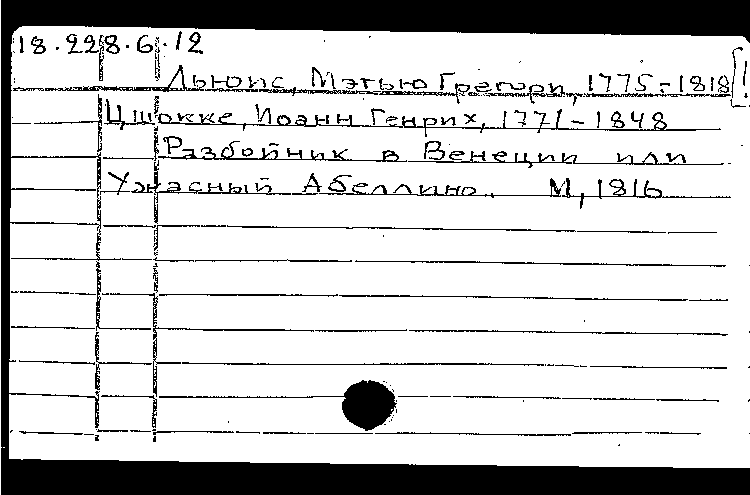 18.228.6.12
Льюис, Мэтью Грегори, 1775-1818 [!
Цшокке, Иоанн Генрих, 1771-1848
Разбойник в Венеции или
Ужасный Абеллино. М, 1816